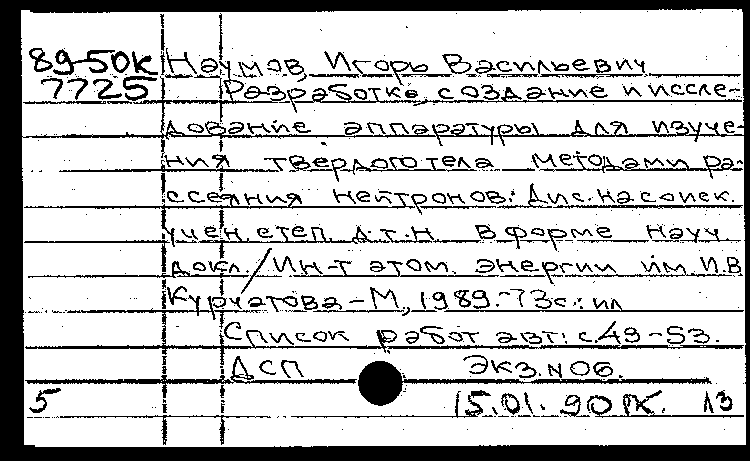 89-50К Наумов, Игорь Васильевич
7725 Разработка, создание и иссле-
дование аппаратуры для изуче-
ния твердого тела методами ра-
ссеяния нейтронов: Дис. на соиск.
учен. степ. д.т.н. в форме науч.
докл./Ин-т атом. энергии им. И.В.
Курчатова - М., 1989.-73с.: ил
Список работ авт.: с.49-53.
ДСП Экз. N 06.
5 15.01.90 ГК. 13